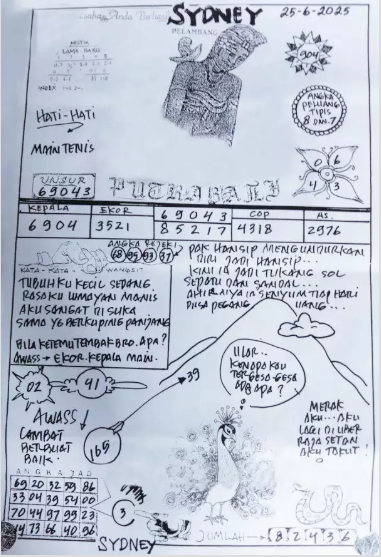 SYDNEY
25-6-2025
PELAMBANG
MISTIK
LAMA BARU
904
ANGKA
PELUANG
TIPIS
8 DAN 7
HATI-HATI
MAIN TENIS
0 6
4 3
UNSUR
69043
PUTRA BALI
KEPALA EKOR 69043 COP AS
6904 3521 85217 4318 2976
ANGKA REJEKI
68 95 93 37
KATA-KATA WANGSIT
TUBUHKU KECIL SEDANG
RASAKU LUMAYAN MANIS
AKU SANGAT DI SUKA
SAMA YG BERKUPING PANJANG
BILA KETEMU TEMBAK BRO. APA?
AWASS → EKOR. KEPALA MAIN.
PAK HANSIP MENGUNDURKAN
DIRI JADI HANSIP...
KINI IA JADI TUKANG SOL
SEPATU DAN SANDAL...
AHIRNYA IA SENYUM TIAP HARI
BISA PEGANG UANG!...
02
41
39
165
ULAR..
KENAPA KAU
TERGESA-GESA
ADA APA?
MERAK
AKU... AKU
LAGI DI UBER
RAJA SETAN
AKU TAKUT!
AWASS!
LAMBAT
BERBUAT
BAIK.
ANGKA JADI
69 20 32 59 86
33 04 39 54 00
70 44 97 99 23
14 73 66 40 96
3
JUMLAH → 8 2 4 3 6
SYDNEY